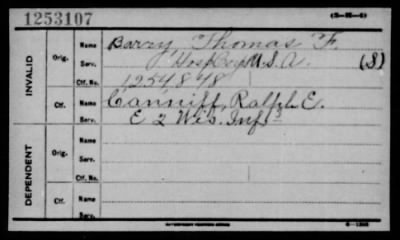 1253107
(3-25-6)
INVALID
Orig. Name Barry, Thomas F.
Serv. Hosp Corps U.S.A. (S)
Ctf. No. 1254848
Ctf. Name Canniff, Ralph E.
Serv. E 2 Wis. Inf.
DEPENDENT
Orig. Name
Serv.
Ctf. No.
Ctf. Name
Serv.